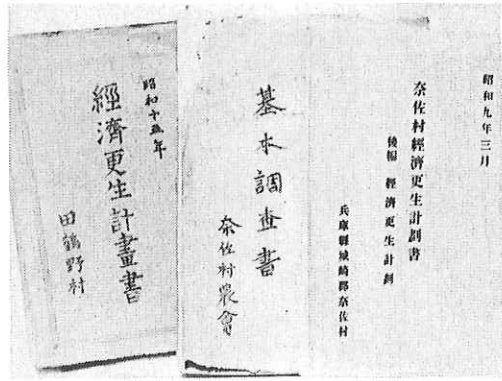 昭和九年三月
奈佐村經濟更生計劃書
後編 經濟更生計劃
兵庫縣城崎郡奈佐村
基本調査書
奈佐村農會
昭和十五年
經濟更生計畫書
田鶴野村